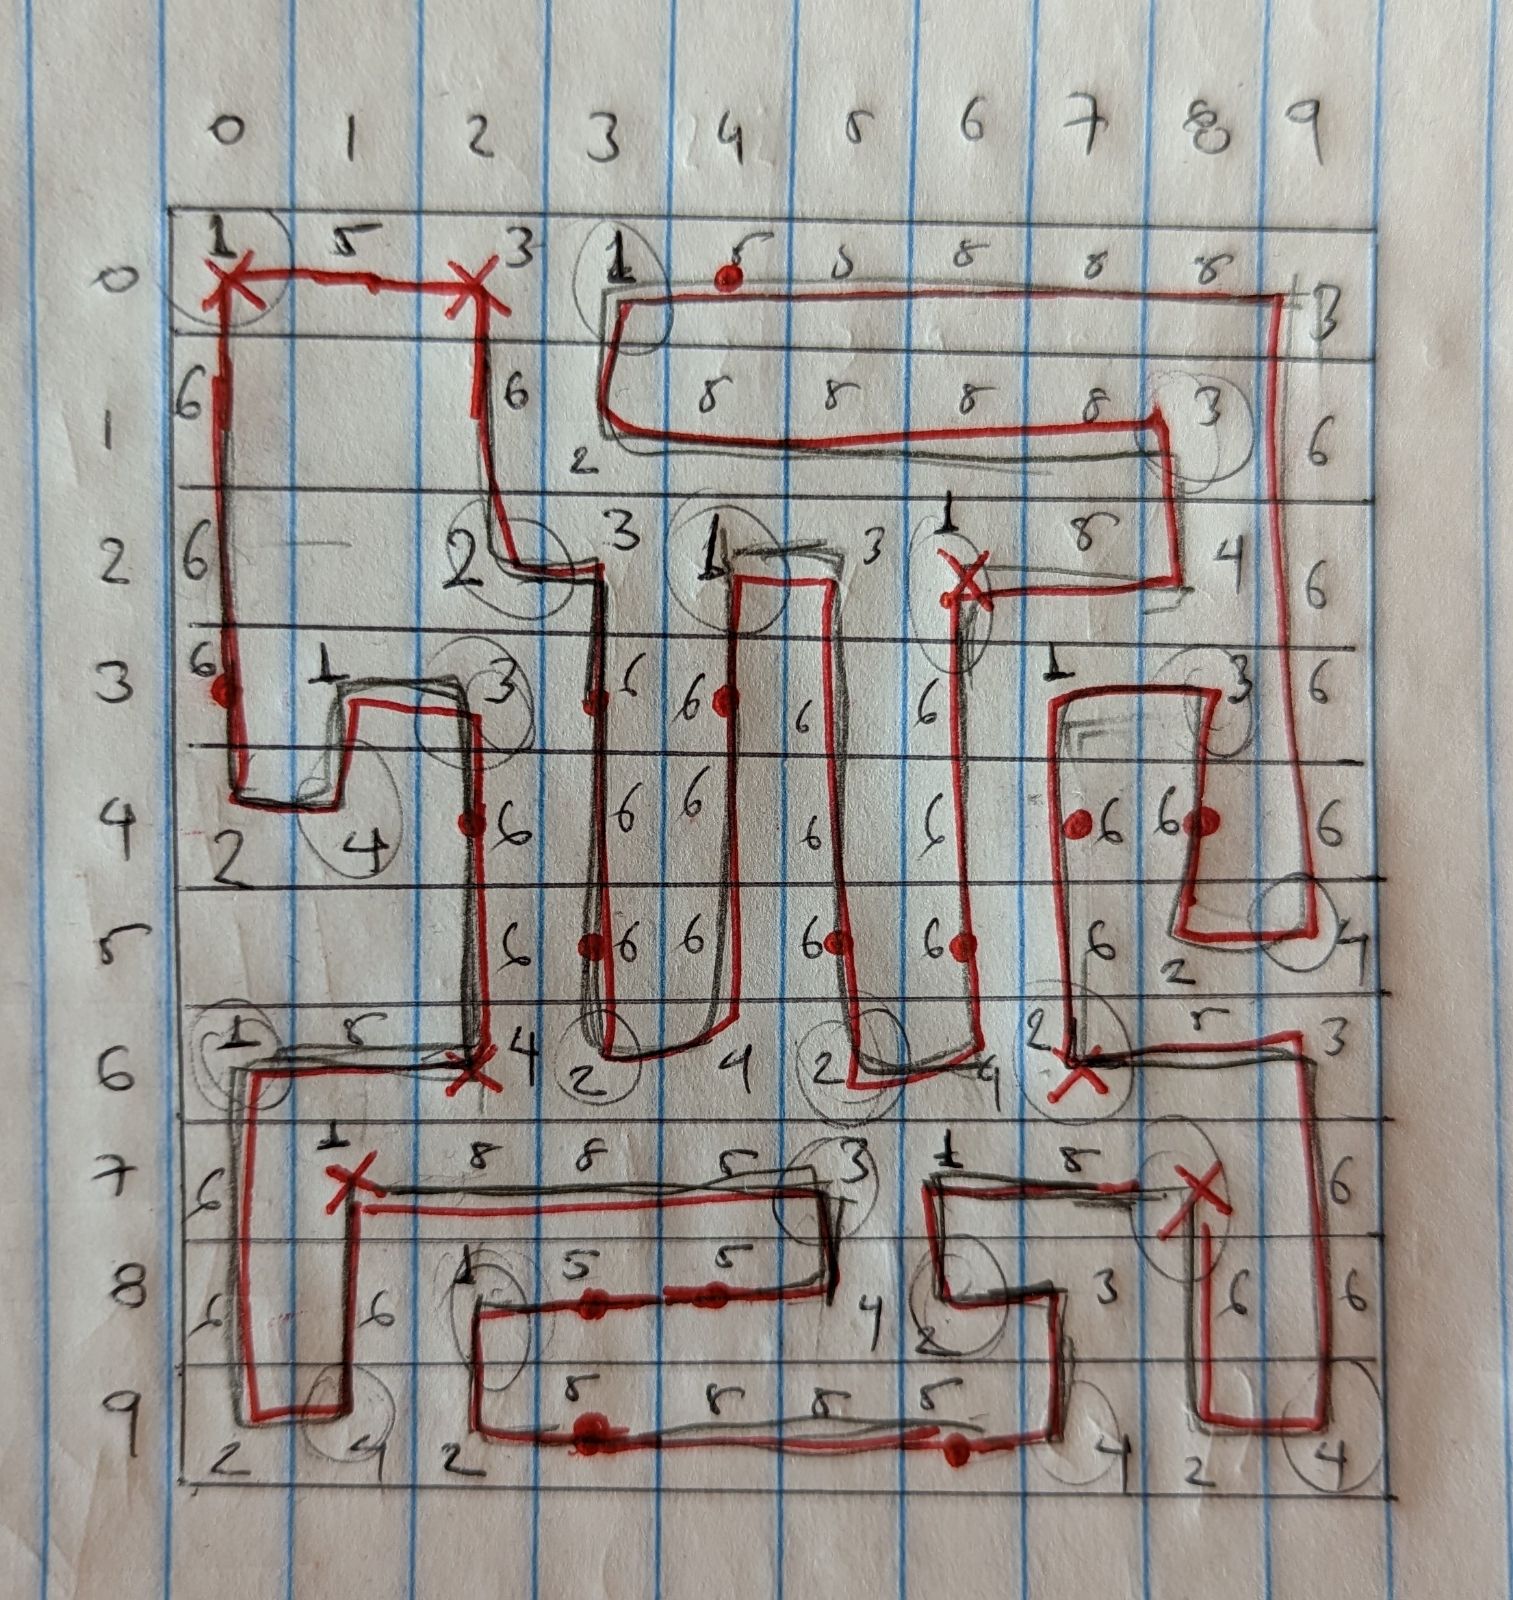 0 1 2 3 4 5 6 7 8 9
0 1 5 3 1 5 5 5 5 5 3
1 6 6 2 5 5 5 5 3 6
2 6 2 3 1 3 1 5 4 6
3 6 1 3 6 6 6 6 1 3 6
4 2 4 6 6 6 6 6 6 6 6
5 6 6 6 6 6 6 2 4
6 1 5 4 2 4 2 4 2 5 3
7 6 1 5 5 5 3 1 5 6
8 6 6 1 5 5 4 2 3 6 6
9 2 4 2 5 5 5 5 4 2 4